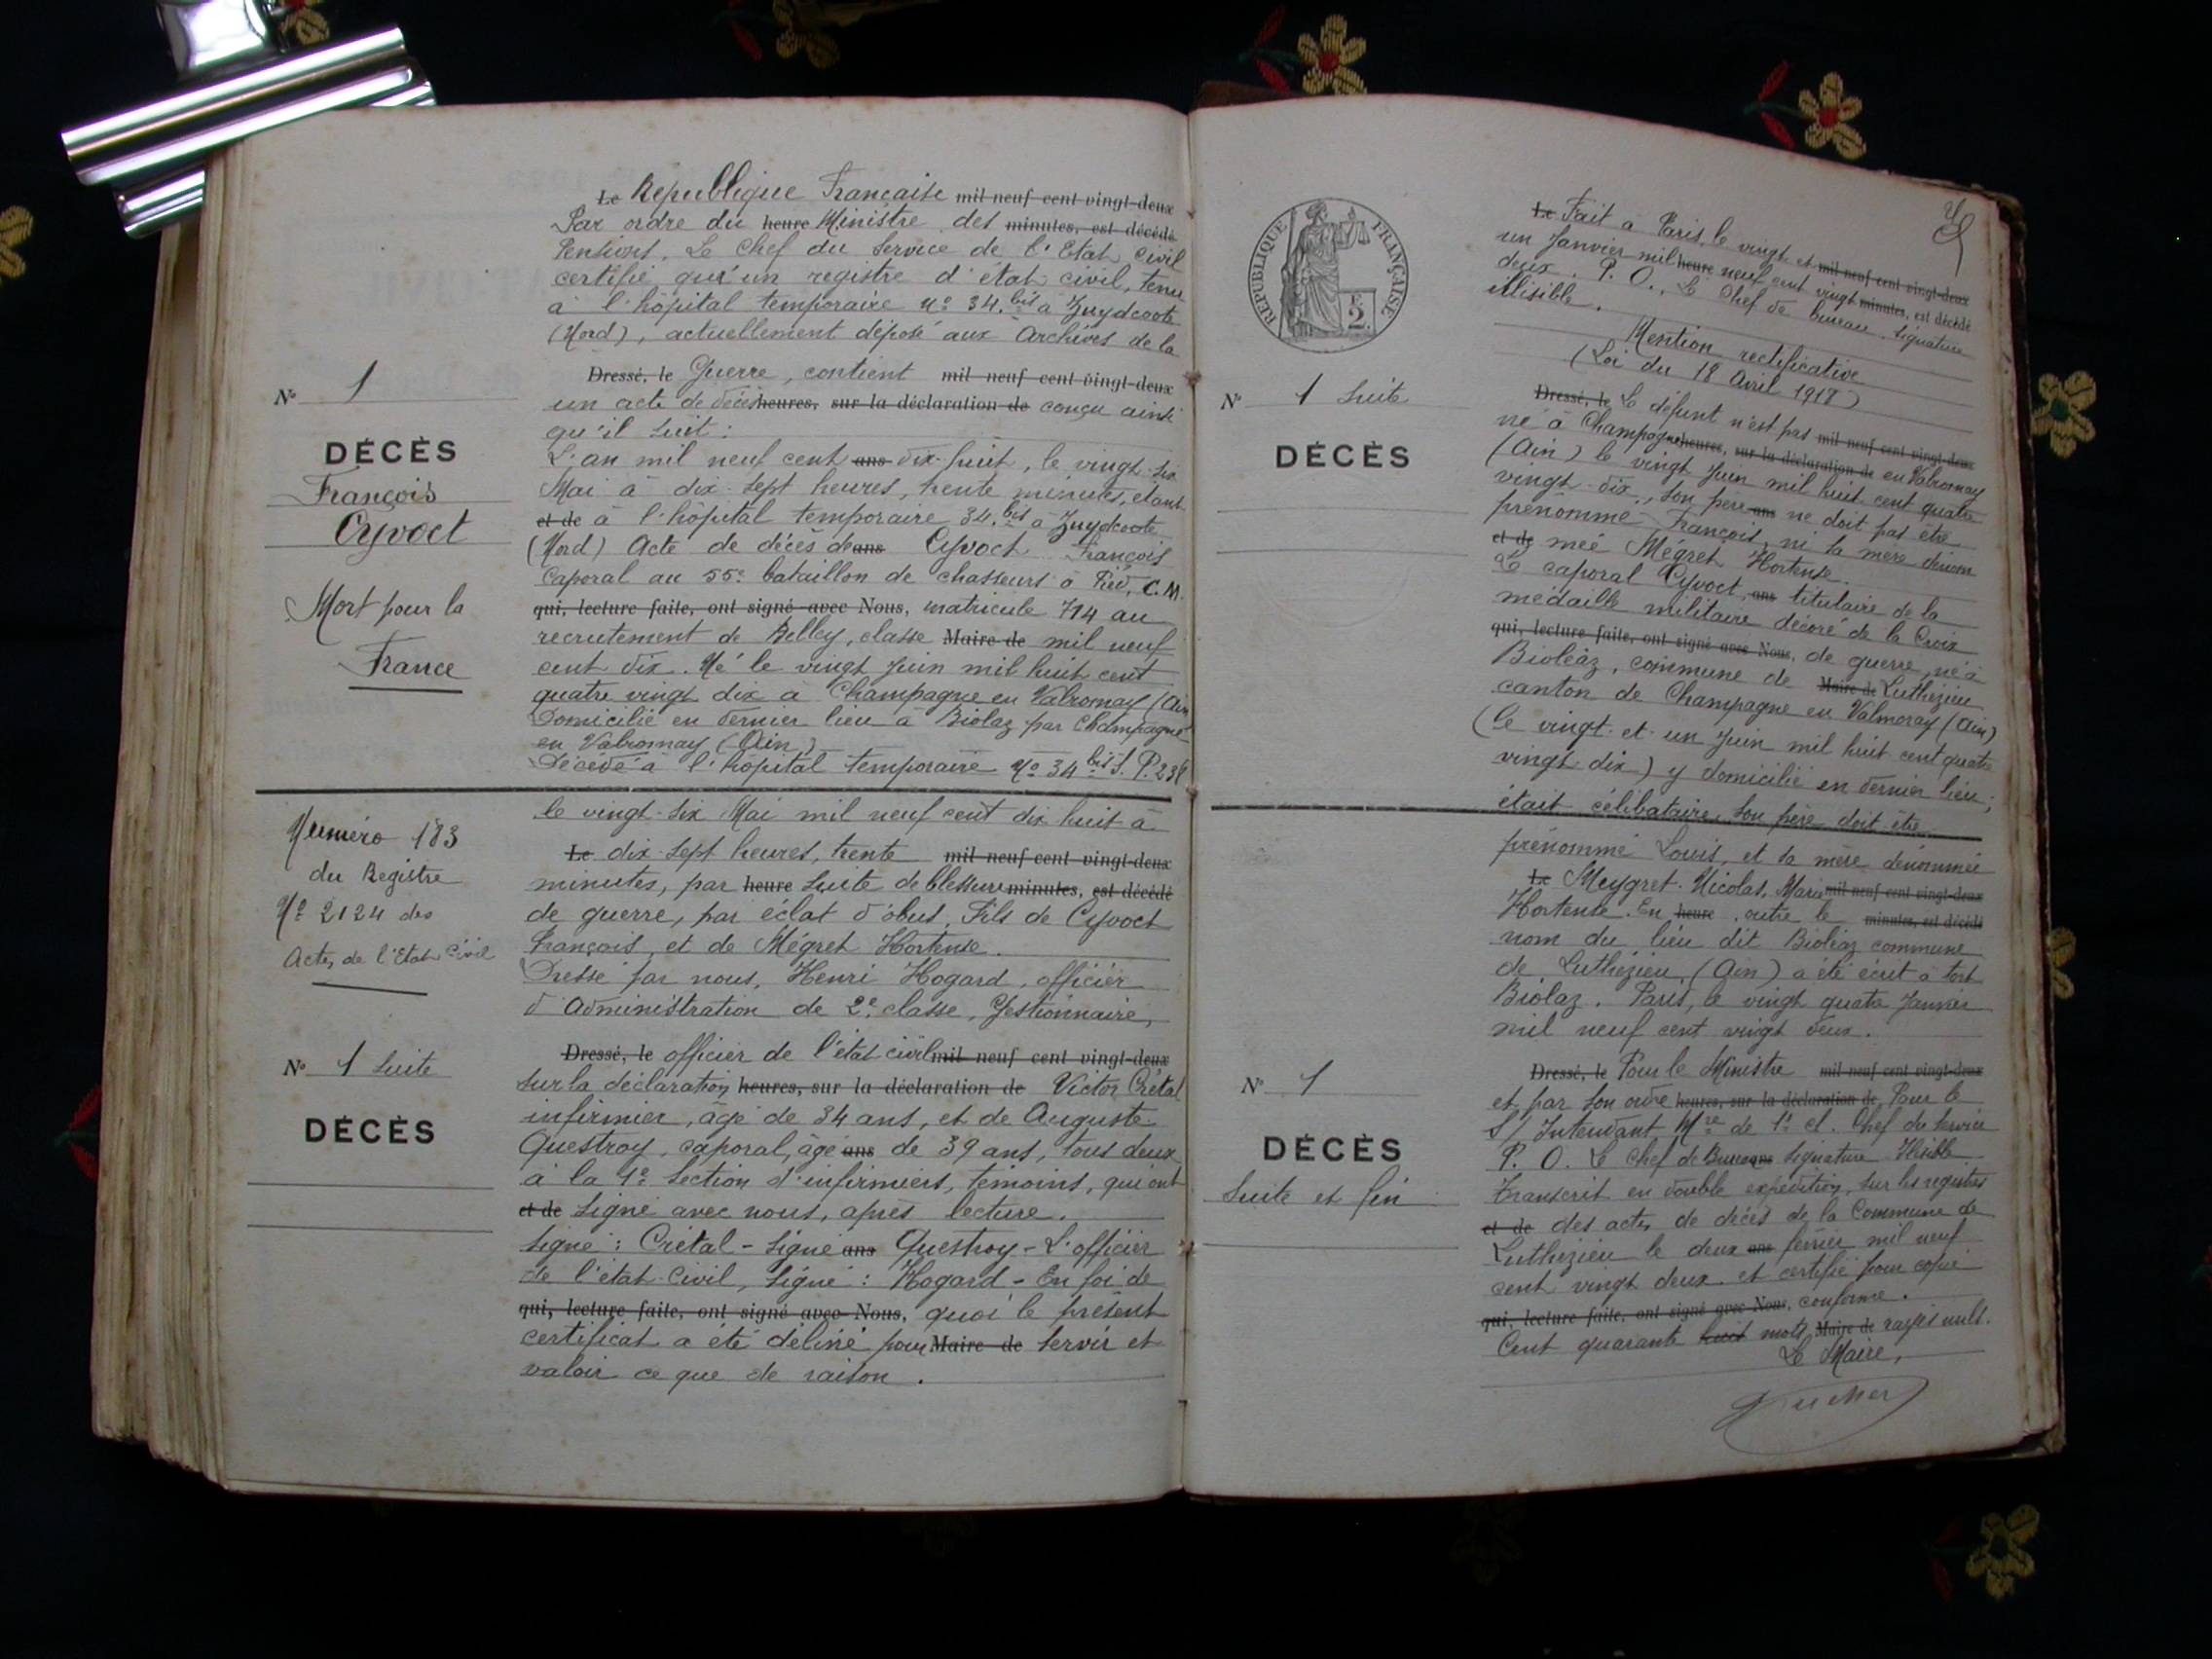 Le République Française mil neuf cent vingt-deux
Par ordre du heure Ministre des minutes, est décédé
Pensions. Le Chef du Service de l'Etat Civil
certifie qu'un registre d'état civil, tenu
à l'hôpital temporaire No 34 bis à Zuydcoote
(Nord), actuellement déposé aux Archives de la
Dressé, le Guerre, contient mil neuf cent vingt-deux
un acte de décès heures, sur la déclaration de conçu ainsi
qu'il suit :
L'an mil neuf cent ans dix-huit, le vingt-six
Mai à dix-sept heures, trente minutes, étant
et de à l'hôpital temporaire 34 bis à Zuydcoote
(Nord) Acte de décès de ans Cyvoct François
Caporal au 55e bataillon de chasseurs à Pied, C.M.
qui, lecture faite, ont signé avec Nous, matricule 714 au
recrutement de Belley, classe Maire de mil neuf
cent dix. Né le vingt Juin mil huit cent
quatre vingt dix à Champagne en Valromay (Ain
Domicilié en dernier lieu à Biolaz par Champagne
en Valromay (Ain)
Décédé à l'hôpital temporaire No 34 bis S. P.
N° 1
DÉCÈS
François
Cyvoct
Mort pour la
France
le vingt-six Mai mil neuf cent dix huit à
Le dix-sept heures, trente mil neuf cent vingt-deux
minutes, par heure suite de blessure minutes, est décédé
de guerre, par éclat d'obus. Fils de Cyvoct
François, et de Mégret Hortense.
Dressé par nous, Henri Hogard, officier
d'Administration de 2e classe, Gestionnaire,
Dressé, le officier de l'état civil mil neuf cent vingt-deux
sur la déclaration heures, sur la déclaration de Victor Crétal
infirmier, âgé de 34 ans, et de Auguste
Questroy, caporal, âgé ans de 39 ans, tous deux
à la 1e Section d'infirmiers, témoins, qui ont
et de signé avec nous, après lecture.
Signé : Crétal - Signé ans Questroy - L'officier
de l'état-Civil, Signé : Hogard - En foi de
qui, lecture faite, ont signé avec Nous, quoi le présent
certificat a été délivré pour Maire de servir et
valoir ce que de raison.
Numéro 183
du Registre
No 2124 des
Actes de l'Etat Civil
N° 1 Suite
DÉCÈS
REPUBLIQUE FRANÇAISE
Le Fait à Paris, le vingt et mil neuf cent vingt-deux
un Janvier mil heure neuf cent vingt minutes, est décédé
deux. P. O., Le Chef de bureau, Signature
illisible.
Mention rectificative
(Loi du 18 Avril 1918)
Dressé, le Le défunt n'est pas mil neuf cent vingt-deux
né à Champagne heures, sur la déclaration de en Valromay
(Ain) le vingt Juin mil huit cent quatre
vingt-dix, son père ans ne doit pas être
prénommé François, ni sa mère dénom
et de meé Mégret Hortense.
Le caporal Cyvoct, ans titulaire de la
médaille militaire décoré de la Croix
qui, lecture faite, ont signé avec Nous, de guerre, né à
Bioléaz, commune de Maire de Luthézieu
canton de Champagne en Valmoray (Ain)
(le vingt et un Juin mil huit cent quatre
vingt dix) y domicilié en dernier lieu ;
était célibataire, Son père doit être
N° 1 Suite
DÉCÈS
prénommé Louis, et sa mère dénommée
Le Meygret-Nicolas, Marie mil neuf cent vingt-deux
Hortense. En heure, outre le minutes, est décédé
nom du lieu dit Bioléaz commune
de Luthézieu, (Ain) a été écrit à tort
Biolaz. Paris, le vingt quatre Janvier
mil neuf cent vingt deux.
Dressé, le Pour le Ministre mil neuf cent vingt-deux
et par son ordre heures, sur la déclaration de, Pour le
S/ Intendant Mre de 1e cl. Chef du Service
P. O. Le Chef de Bureau ans Signature Illisible
Transcrit en double expédition, sur les registres
et de des actes de décès de la Commune de
Luthézieu le deux ans février mil neuf
cent vingt deux et certifié pour copie
qui, lecture faite, ont signé avec Nous, conforme.
Cent quarante huit mots Maire de rayés nuls.
Le Maire,
N° 1
DÉCÈS
Suite et fin